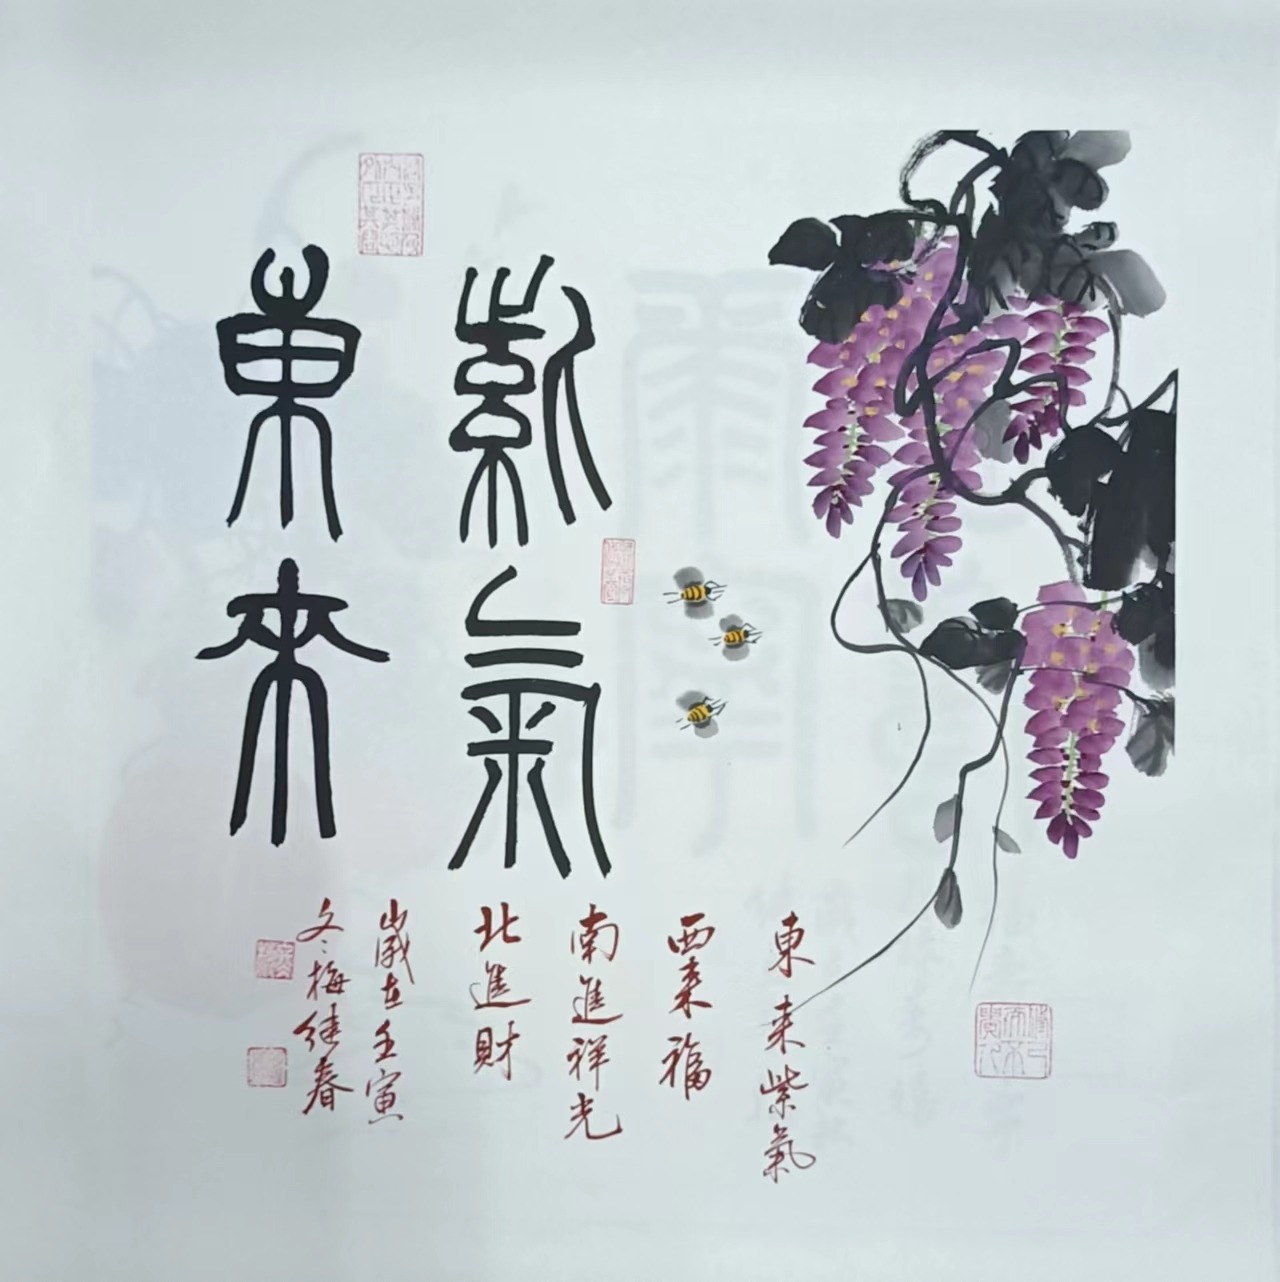 紫氣
東來
東来紫氣
西来福
南進祥光
北進財
歲在壬寅
冬梅继春